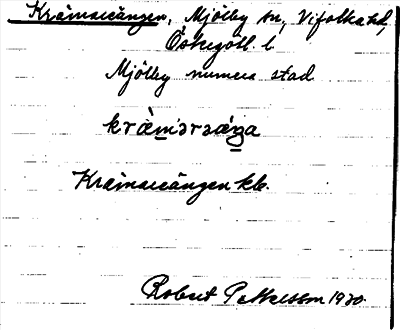 Krämareängen, Mjölby sn, Vifolka hd,
Östergötl. l.
Mjölby numera stad
Kramareängen kb.
Robert Pettersson 1930.